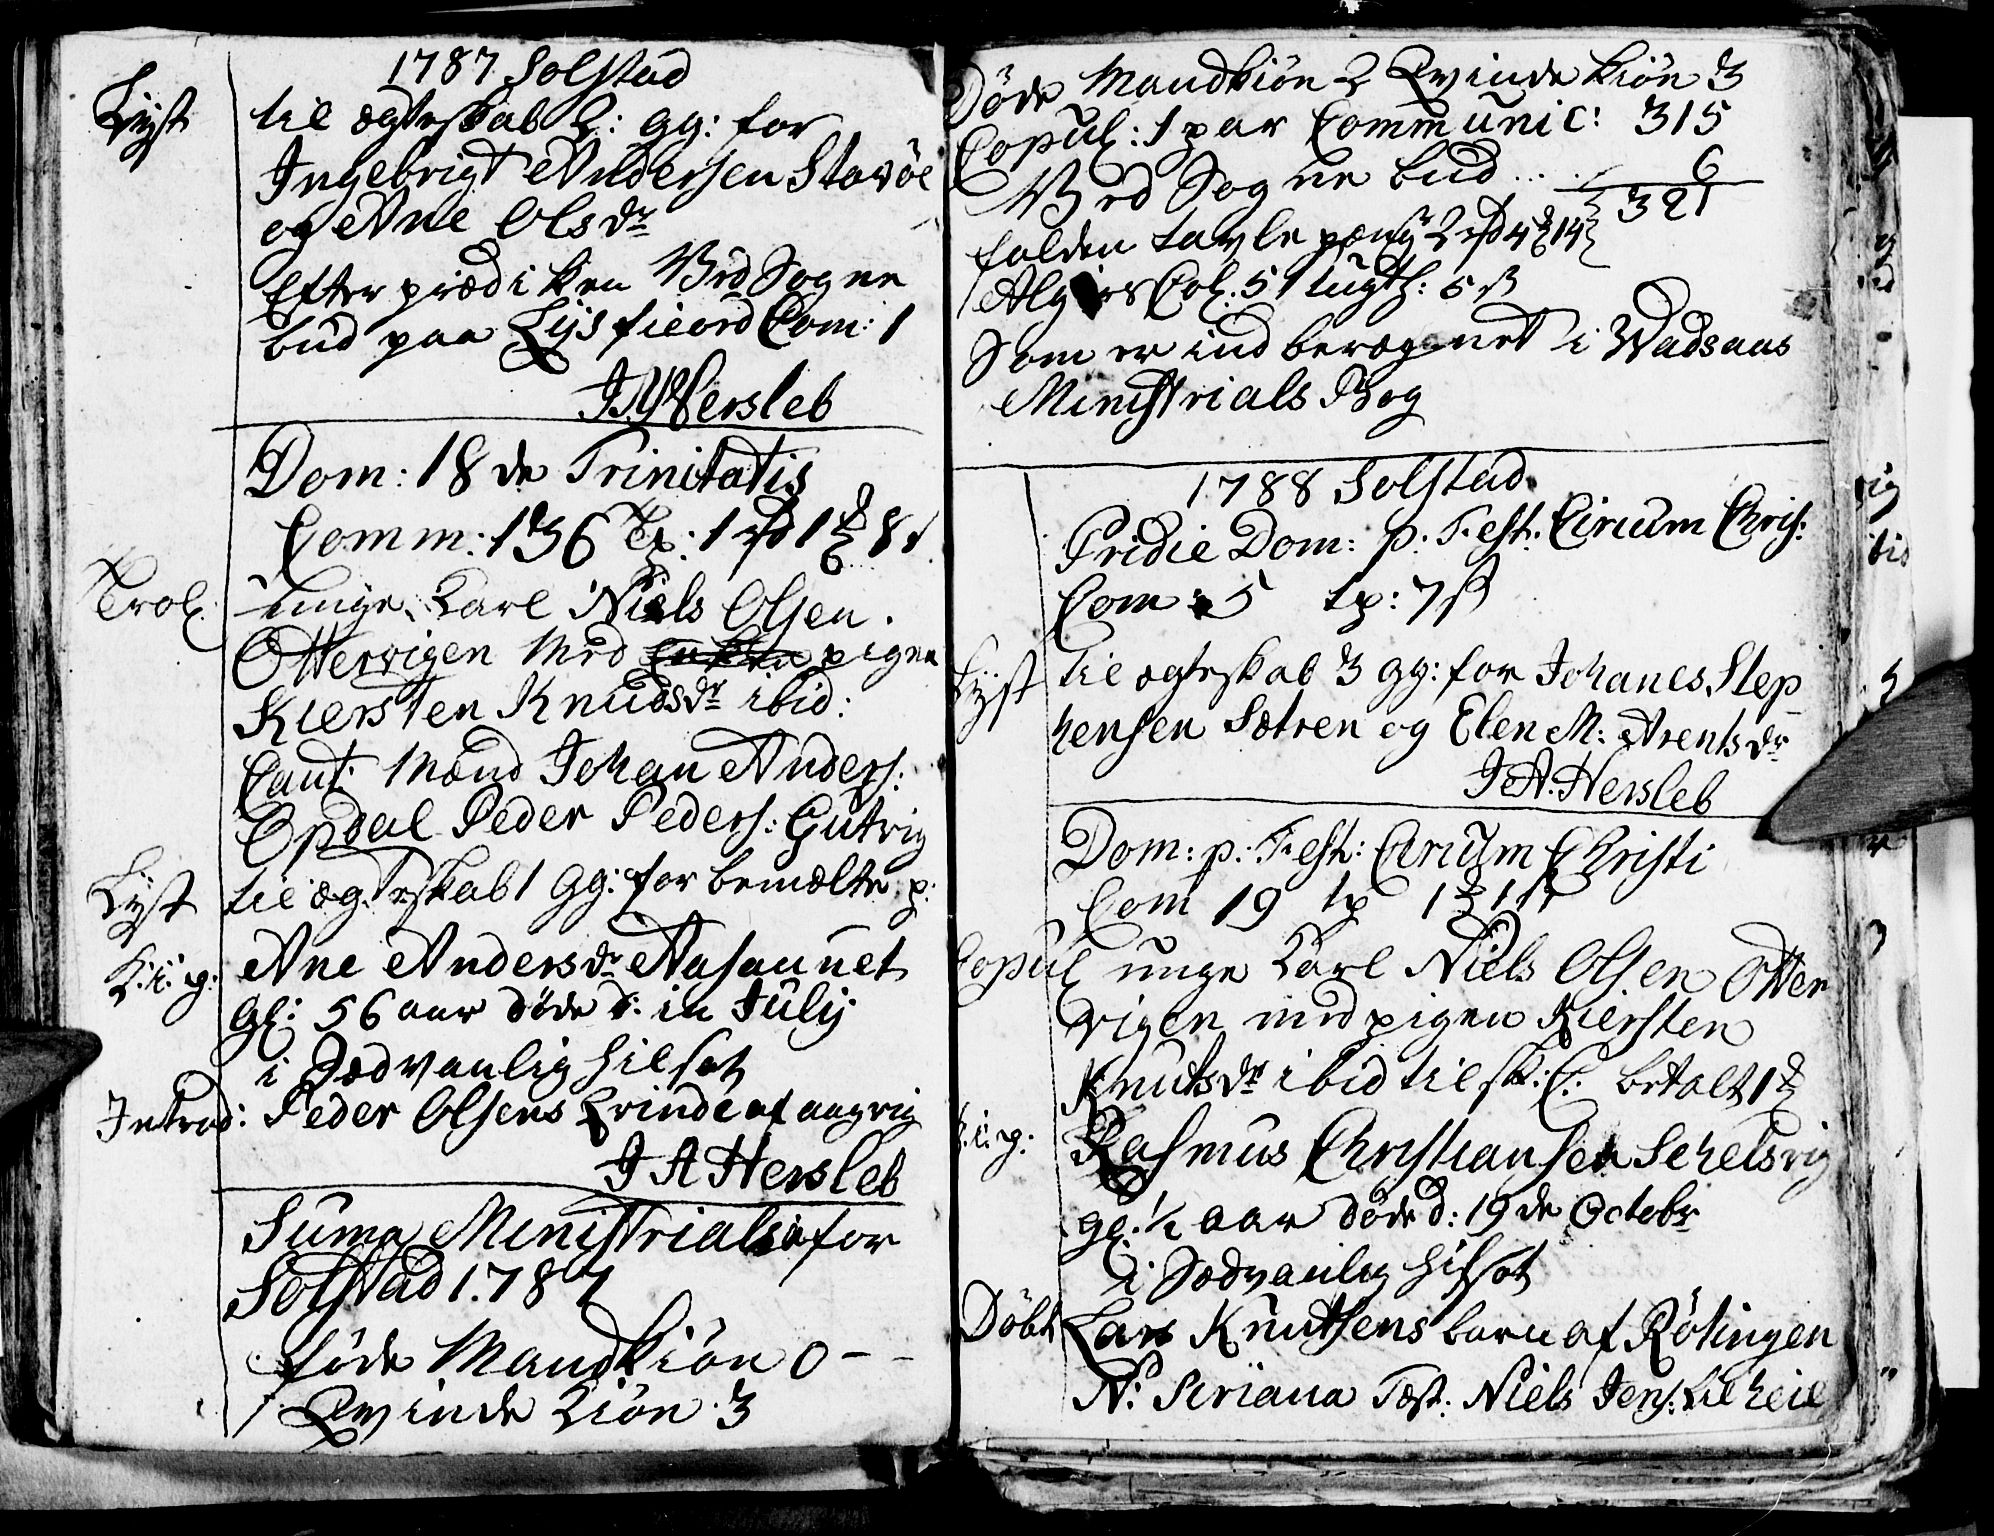 1787 Solstad
Lyst til ægteskab 2: gg: for
Ingebrigt Andersen Stavöe
og Ane Olsdr
Efter prædiken Ved Sogne
bud paa Lysfieord Com: 1
J A Hersleb
Dom: 18 de Trinitatis
Comm: 136 Tp: 1 rd 1 8
Trol. unge Karl Niels Olsen
Ottervigen Med pigen
Kiersten Knudsdr ibid:
Caut: Mænd Johan Anders:
Opdal Peder Peders: Gutvig
Lyst til ægteskab 1 Gg: for bemælte p:
Ane Andersdr Aasaunet
gl: 56 aar döde d: in July
i Sædvanlig hilset
Introd: Peder Olsens Qvinde af aagvig
J A Hersleb
Suma Ministrialia for
Solstad 1787
föde Mandkiön 0 - -
Qvinde Kiön 3
Döde Mandkiön 2 Qvinde kiön 3
Copul: 1 par Communic: 315
Ved Sogne bud ... 6
321
falden tavle peng 2 rd 4 14
Col: 5 tugth: 5 ß
Som er indberægnet i Wadsaas
Ministrials Bog
1788 Solstad
Pridie Dom: p. Fest: Circum Chris:
Com: 5 tp: 7 ß
Lyst til ægteskab 3 gg: for Johanes Step
hensen Sætren og Elen M: Arentsdr
J A: Hersleb
Dom: p: Fest: Circum Christi
Com 19 tp 1
Copul unge Karl Niels Olsen Otter
vigen med pigen Kiersten
Knutsdr ibid til sk: C. betalt 1
Rasmus Christiansen Schelsvig
gl: ½ aar döde d: 19 de Octobr
i Sædvanlig hilset
Döbt Lars Knuthsens barn af Rötingen
N: Seriana Test: Niels Jens: